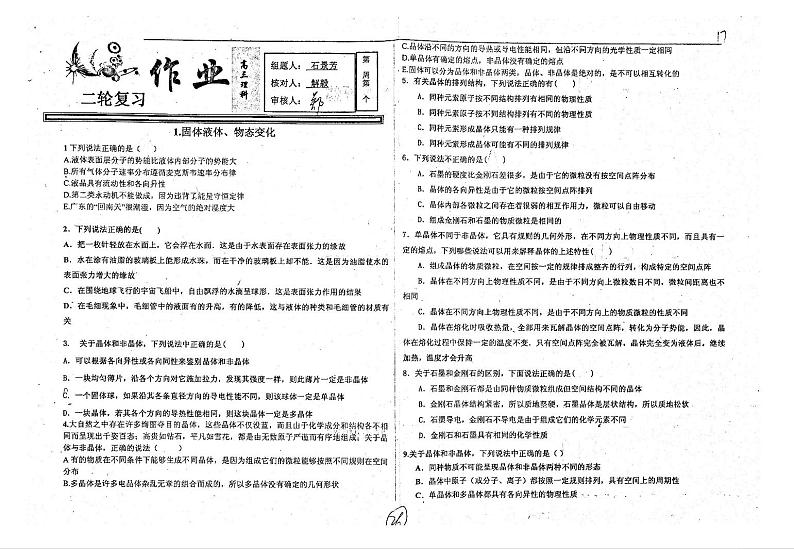 17
作业
二轮复习
高三理科
组题人：石景芳
核对人：解毅
审核人：
第 周第 个
1.固体液体、物态变化
1 下列说法正确的是（ ）
A.液体表面层分子的势能比液体内部分子的势能大
B.所有气体分子速率分布遵循麦克斯韦速率分布律
C.液晶具有流动性和各向异性
D.第二类永动机不能做成，因为违背了能量守恒定律
E.广东的“回南天”很潮湿，因为空气的绝对湿度大
2．下列说法正确的是( )
A．把一枚针轻放在水面上，它会浮在水面．这是由于水表面存在表面张力的缘故
B．水在涂有油脂的玻璃板上能形成水珠，而在干净的玻璃板上却不能．这是因为油脂使水的
表面张力增大的缘故
C．在围绕地球飞行的宇宙飞船中，自由飘浮的水滴呈球形．这是表面张力作用的结果
D．在毛细现象中，毛细管中的液面有的升高，有的降低，这与液体的种类和毛细管的材质有
关
3． 关于晶体和非晶体，下列说法中正确的是( )
A．可以根据各向异性或各向同性来鉴别晶体和非晶体
B．一块均匀薄片，沿各个方向对它施加拉力，发现其强度一样，则此薄片一定是非晶体
C．一个固体球，如果沿其各条直径方向的导电性能不同，则该球体一定是单晶体
D．一块晶体，若其各个方向的导热性能相同，则这块晶体一定是多晶体
4.大自然之中存在许多绚丽夺目的晶体，这些晶体不仅美丽，而且由于化学成分和结构各不相
同而呈现出千姿百态；高贵如钻石，平凡如雪花，都是由无数原子严谨而有序地组成。关于晶
体与非晶体，正确的说法（ ）
A 有的物质在不同条件下能够生成不同晶体，是因为组成它们的微粒能够按照不同规则在空间
分布
B.多晶体是许多电晶体杂乱无章的组合而成的，所以多晶体没有确定的几何形状
C.晶体沿不同的方向的导热或导电性能相同，但沿不同方向的光学性质一定相同
D.单晶体有确定的熔点，非晶体没有确定的熔点
E.固体可以分为晶体和非晶体两类，晶体、非晶体是绝对的，是不可以相互转化的
5．有关晶体的排列结构，下列说法正确的有( )
A．同种元素原子按不同结构排列有相同的物理性质
B．同种元素原子按不同结构排列有不同的物理性质
C．同种元素形成晶体只能有一种排列规律
D．同种元素形成晶体可能有不同的排列规律
6．下列说法不正确的是( )
A．石墨的硬度比金刚石差很多，是由于它的微粒没有按空间点阵分布
B．晶体的各向异性是由于它的微粒按空间点阵排列
C．晶体内部各微粒之间存在着很弱的相互作用力，微粒可以自由移动
D．组成金刚石和石墨的物质微粒是相同的
7．单晶体不同于非晶体，它具有规则的几何外形，在不同方向上物理性质不同，而且具有一
定的熔点，下列哪些说法可以用来解释晶体的上述特性( )
A．组成晶体的物质微粒，在空间按一定的规律排成整齐的行列，构成特定的空间点阵
B．晶体在不同方向上物理性质不同，是由于不同方向上微粒数目不同，微粒间距离也不
相同
C．晶体在不同方向上物理性质不同，是由于不同方向上的物质微粒的性质不同
D．晶体在熔化时吸收热量，全部用来瓦解晶体的空间点阵，转化为分子势能，因此，晶
体在熔化过程中保持一定的温度不变．只有空间点阵完全被瓦解，晶体完全变为液体后，继续
加热，温度才会升高
8．关于石墨和金刚石的区别，下面说法正确的是( )
A．石墨和金刚石都是由同种物质微粒组成但空间结构不同的晶体
B．金刚石晶体结构紧密，所以质地坚硬，石墨晶体是层状结构，所以质地松软
C．石墨导电，金刚石不导电是由于组成它们的化学元素不同
D．金刚石和石墨具有相同的化学性质
9.关于晶体和非晶体，下列说法中正确的是（ ）
A．同种物质不可能呈现晶体和非晶体两种不同的形态
B．晶体中原子（或分子、离子）都按照一定规则排列，具有空间上的周期性
C．单晶体和多晶体都具有各向异性的物理性质